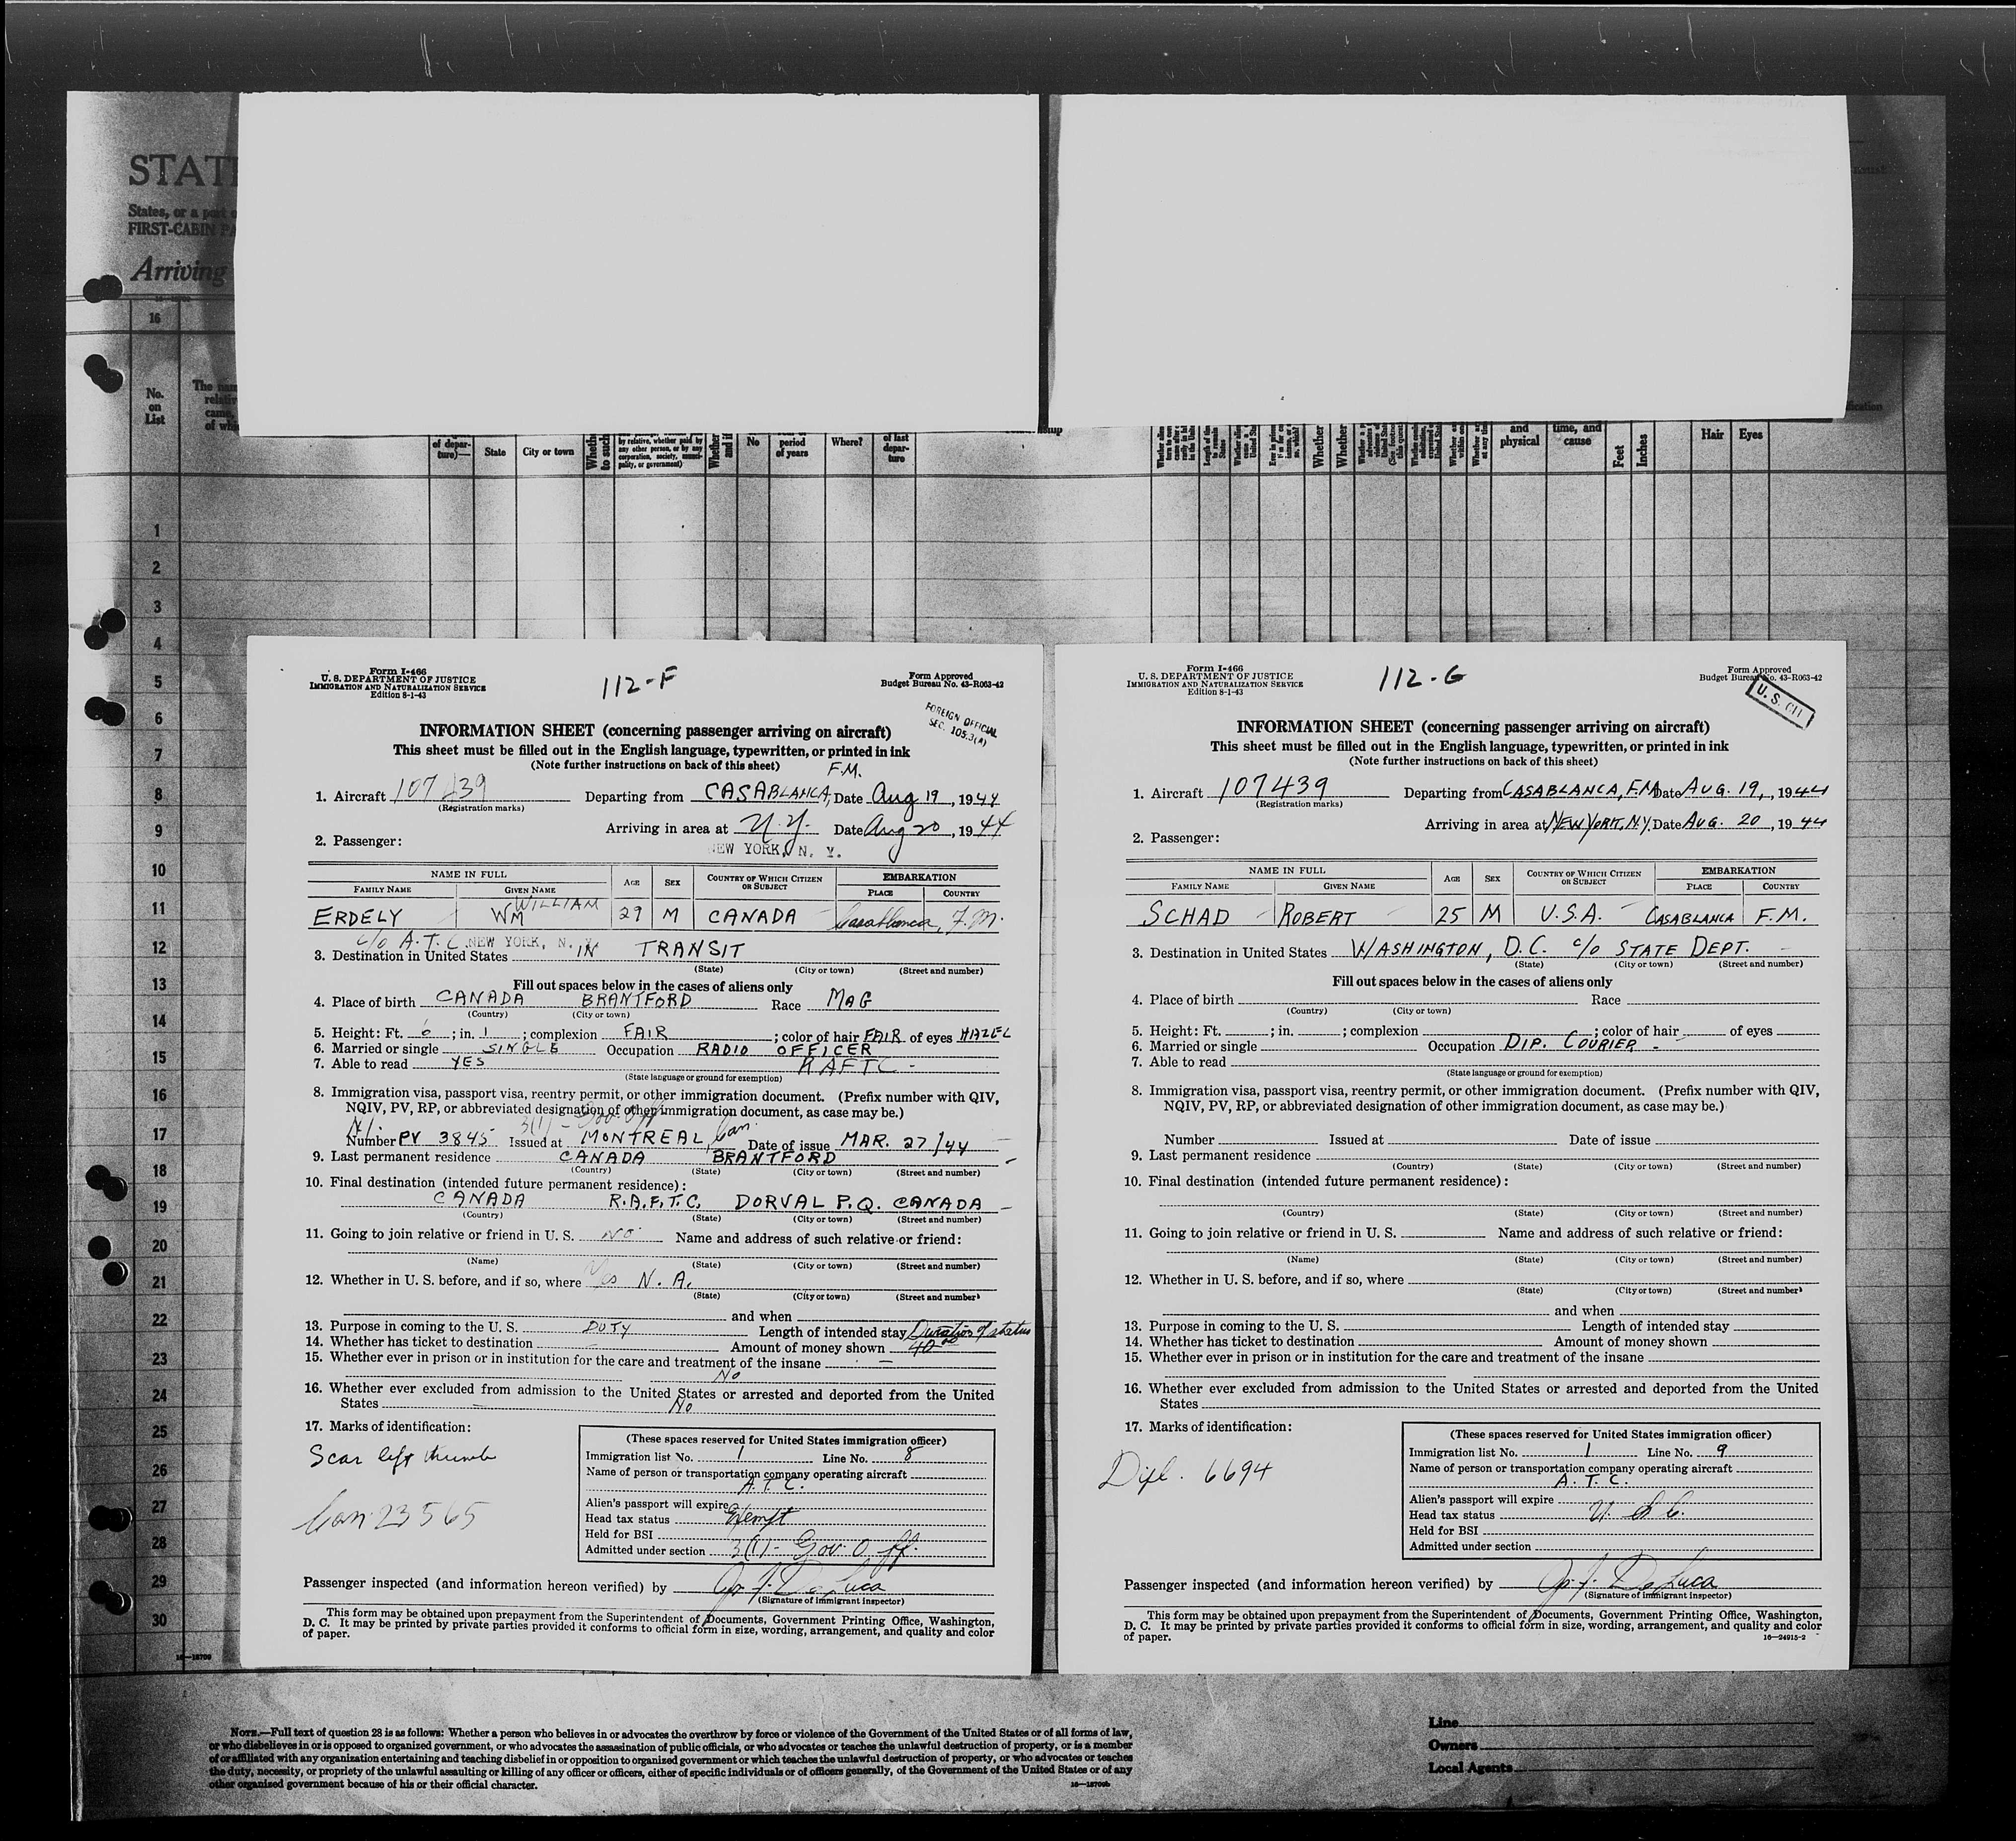 STAT
States, or a part o
FIRST-CABIN PA
Arriving
16
No.
on
List
The nam
relativ
came,
of whi
of depar-
ture)—
State
City or town
Whethe
to such
by relative, whether paid by
any other person, or by any
corporation, society, munici-
pality, or government)
Whether
and if
No
period
of years
Where?
of last
depar-
ture
Whether
Whether
and
physical
time, and
cause
Feet
Inches
Hair
Eyes
1
2
3
4
5
6
7
8
9
10
11
12
13
14
15
16
17
18
19
20
21
22
23
24
25
26
27
28
29
30
Form I-466
U. S. DEPARTMENT OF JUSTICE
IMMIGRATION AND NATURALIZATION SERVICE
Edition 8-1-43
112-F
Form Approved
Budget Bureau No. 43-R063-42
FOREIGN OFFICIAL
SEC. 105.3(A)
INFORMATION SHEET (concerning passenger arriving on aircraft)
This sheet must be filled out in the English language, typewritten, or printed in ink
(Note further instructions on back of this sheet)
F.M.
1. Aircraft 107439 Departing from CASABLANCA, Date Aug 19, 1944
(Registration marks)
Arriving in area at N.Y. Date Aug 20, 1944
2. Passenger:
NEW YORK, N. Y.
NAME IN FULL
AGE
SEX
COUNTRY OF WHICH CITIZEN
OR SUBJECT
EMBARKATION
FAMILY NAME
GIVEN NAME
PLACE
COUNTRY
WILLIAM
ERDELY WM 29 M CANADA Casablanca, F.M.
c/o A.T.C. NEW YORK, N. Y.
3. Destination in United States IN TRANSIT
(State) (City or town) (Street and number)
Fill out spaces below in the cases of aliens only
4. Place of birth CANADA BRANTFORD Race MAG
(Country) (City or town)
5. Height: Ft. 6; in. 1; complexion FAIR; color of hair FAIR of eyes HAZEL
6. Married or single SINGLE Occupation RADIO OFFICER
7. Able to read YES RAFTC -
(State language or ground for exemption)
8. Immigration visa, passport visa, reentry permit, or other immigration document. (Prefix number with QIV,
NQIV, PV, RP, or abbreviated designation of other immigration document, as case may be.)
3(1) - Gov. Off
Number PV 3845 Issued at MONTREAL, Can. Date of issue MAR. 27/44
9. Last permanent residence CANADA BRANTFORD
(Country) (State) (City or town) (Street and number)
10. Final destination (intended future permanent residence):
CANADA R.A.F.T.C. DORVAL P.Q. CANADA
(Country) (State) (City or town) (Street and number)
11. Going to join relative or friend in U. S. NO Name and address of such relative or friend:
(Name) (State) (City or town) (Street and number)
12. Whether in U. S. before, and if so, where Yes N. A.
(State) (City or town) (Street and number)
and when
13. Purpose in coming to the U. S. DUTY Length of intended stay Duration of status
14. Whether has ticket to destination Amount of money shown 40 00
15. Whether ever in prison or in institution for the care and treatment of the insane
No
16. Whether ever excluded from admission to the United States or arrested and deported from the United
States No
17. Marks of identification:
Scar left thumb
Can 23565
(These spaces reserved for United States immigration officer)
Immigration list No. 1 Line No. 8
Name of person or transportation company operating aircraft
A.T.C.
Alien's passport will expire
Head tax status Exempt
Held for BSI
Admitted under section 3(1)- Gov. Off.
Passenger inspected (and information hereon verified) by Jos. J. De Luca
(Signature of immigrant inspector)
This form may be obtained upon prepayment from the Superintendent of Documents, Government Printing Office, Washington,
D. C. It may be printed by private parties provided it conforms to official form in size, wording, arrangement, and quality and color
of paper.
Form I-466
U. S. DEPARTMENT OF JUSTICE
IMMIGRATION AND NATURALIZATION SERVICE
Edition 8-1-43
112-G
Form Approved
Budget Bureau No. 43-R063-42
U. S.
INFORMATION SHEET (concerning passenger arriving on aircraft)
This sheet must be filled out in the English language, typewritten, or printed in ink
(Note further instructions on back of this sheet)
1. Aircraft 107439 Departing from CASABLANCA, F.M. Date AUG. 19, 1944
(Registration marks)
Arriving in area at NEW YORK, N.Y. Date AUG. 20, 1944
2. Passenger:
NAME IN FULL
AGE
SEX
COUNTRY OF WHICH CITIZEN
OR SUBJECT
EMBARKATION
FAMILY NAME
GIVEN NAME
PLACE
COUNTRY
SCHAD ROBERT 25 M U.S.A. CASABLANCA F.M.
3. Destination in United States WASHINGTON, D.C. c/o STATE DEPT.
(State) (City or town) (Street and number)
Fill out spaces below in the cases of aliens only
4. Place of birth Race
(Country) (City or town)
5. Height: Ft. ; in. ; complexion ; color of hair of eyes
6. Married or single Occupation DIP. COURIER -
7. Able to read
(State language or ground for exemption)
8. Immigration visa, passport visa, reentry permit, or other immigration document. (Prefix number with QIV,
NQIV, PV, RP, or abbreviated designation of other immigration document, as case may be.)
Number Issued at Date of issue
9. Last permanent residence
(Country) (State) (City or town) (Street and number)
10. Final destination (intended future permanent residence):
(Country) (State) (City or town) (Street and number)
11. Going to join relative or friend in U. S. Name and address of such relative or friend:
(Name) (State) (City or town) (Street and number)
12. Whether in U. S. before, and if so, where
(State) (City or town) (Street and number)
and when
13. Purpose in coming to the U. S. Length of intended stay
14. Whether has ticket to destination Amount of money shown
15. Whether ever in prison or in institution for the care and treatment of the insane
16. Whether ever excluded from admission to the United States or arrested and deported from the United
States
17. Marks of identification:
Dipl. 6694
(These spaces reserved for United States immigration officer)
Immigration list No. 1 Line No. 9
Name of person or transportation company operating aircraft
A. T. C.
Alien's passport will expire
Head tax status U. S. C.
Held for BSI
Admitted under section
Passenger inspected (and information hereon verified) by Jos. J. De Luca
(Signature of immigrant inspector)
This form may be obtained upon prepayment from the Superintendent of Documents, Government Printing Office, Washington,
D. C. It may be printed by private parties provided it conforms to official form in size, wording, arrangement, and quality and color
of paper.
16—24915-2
16—18709
NOTE.—Full text of question 28 is as follows: Whether a person who believes in or advocates the overthrow by force or violence of the Government of the United States or of all forms of law,
or who disbelieves in or is opposed to organized government, or who advocates the assassination of public officials, or who advocates or teaches the unlawful destruction of property, or is a member
of or affiliated with any organization entertaining and teaching disbelief in or opposition to organized government or which teaches the unlawful destruction of property, or who advocates or teaches
the duty, necessity, or propriety of the unlawful assaulting or killing of any officer or officers, either of specific individuals or of officers generally, of the Government of the United States or of any
other organized government because of his or their official character.
16—18709b
Line
Owners
Local Agents